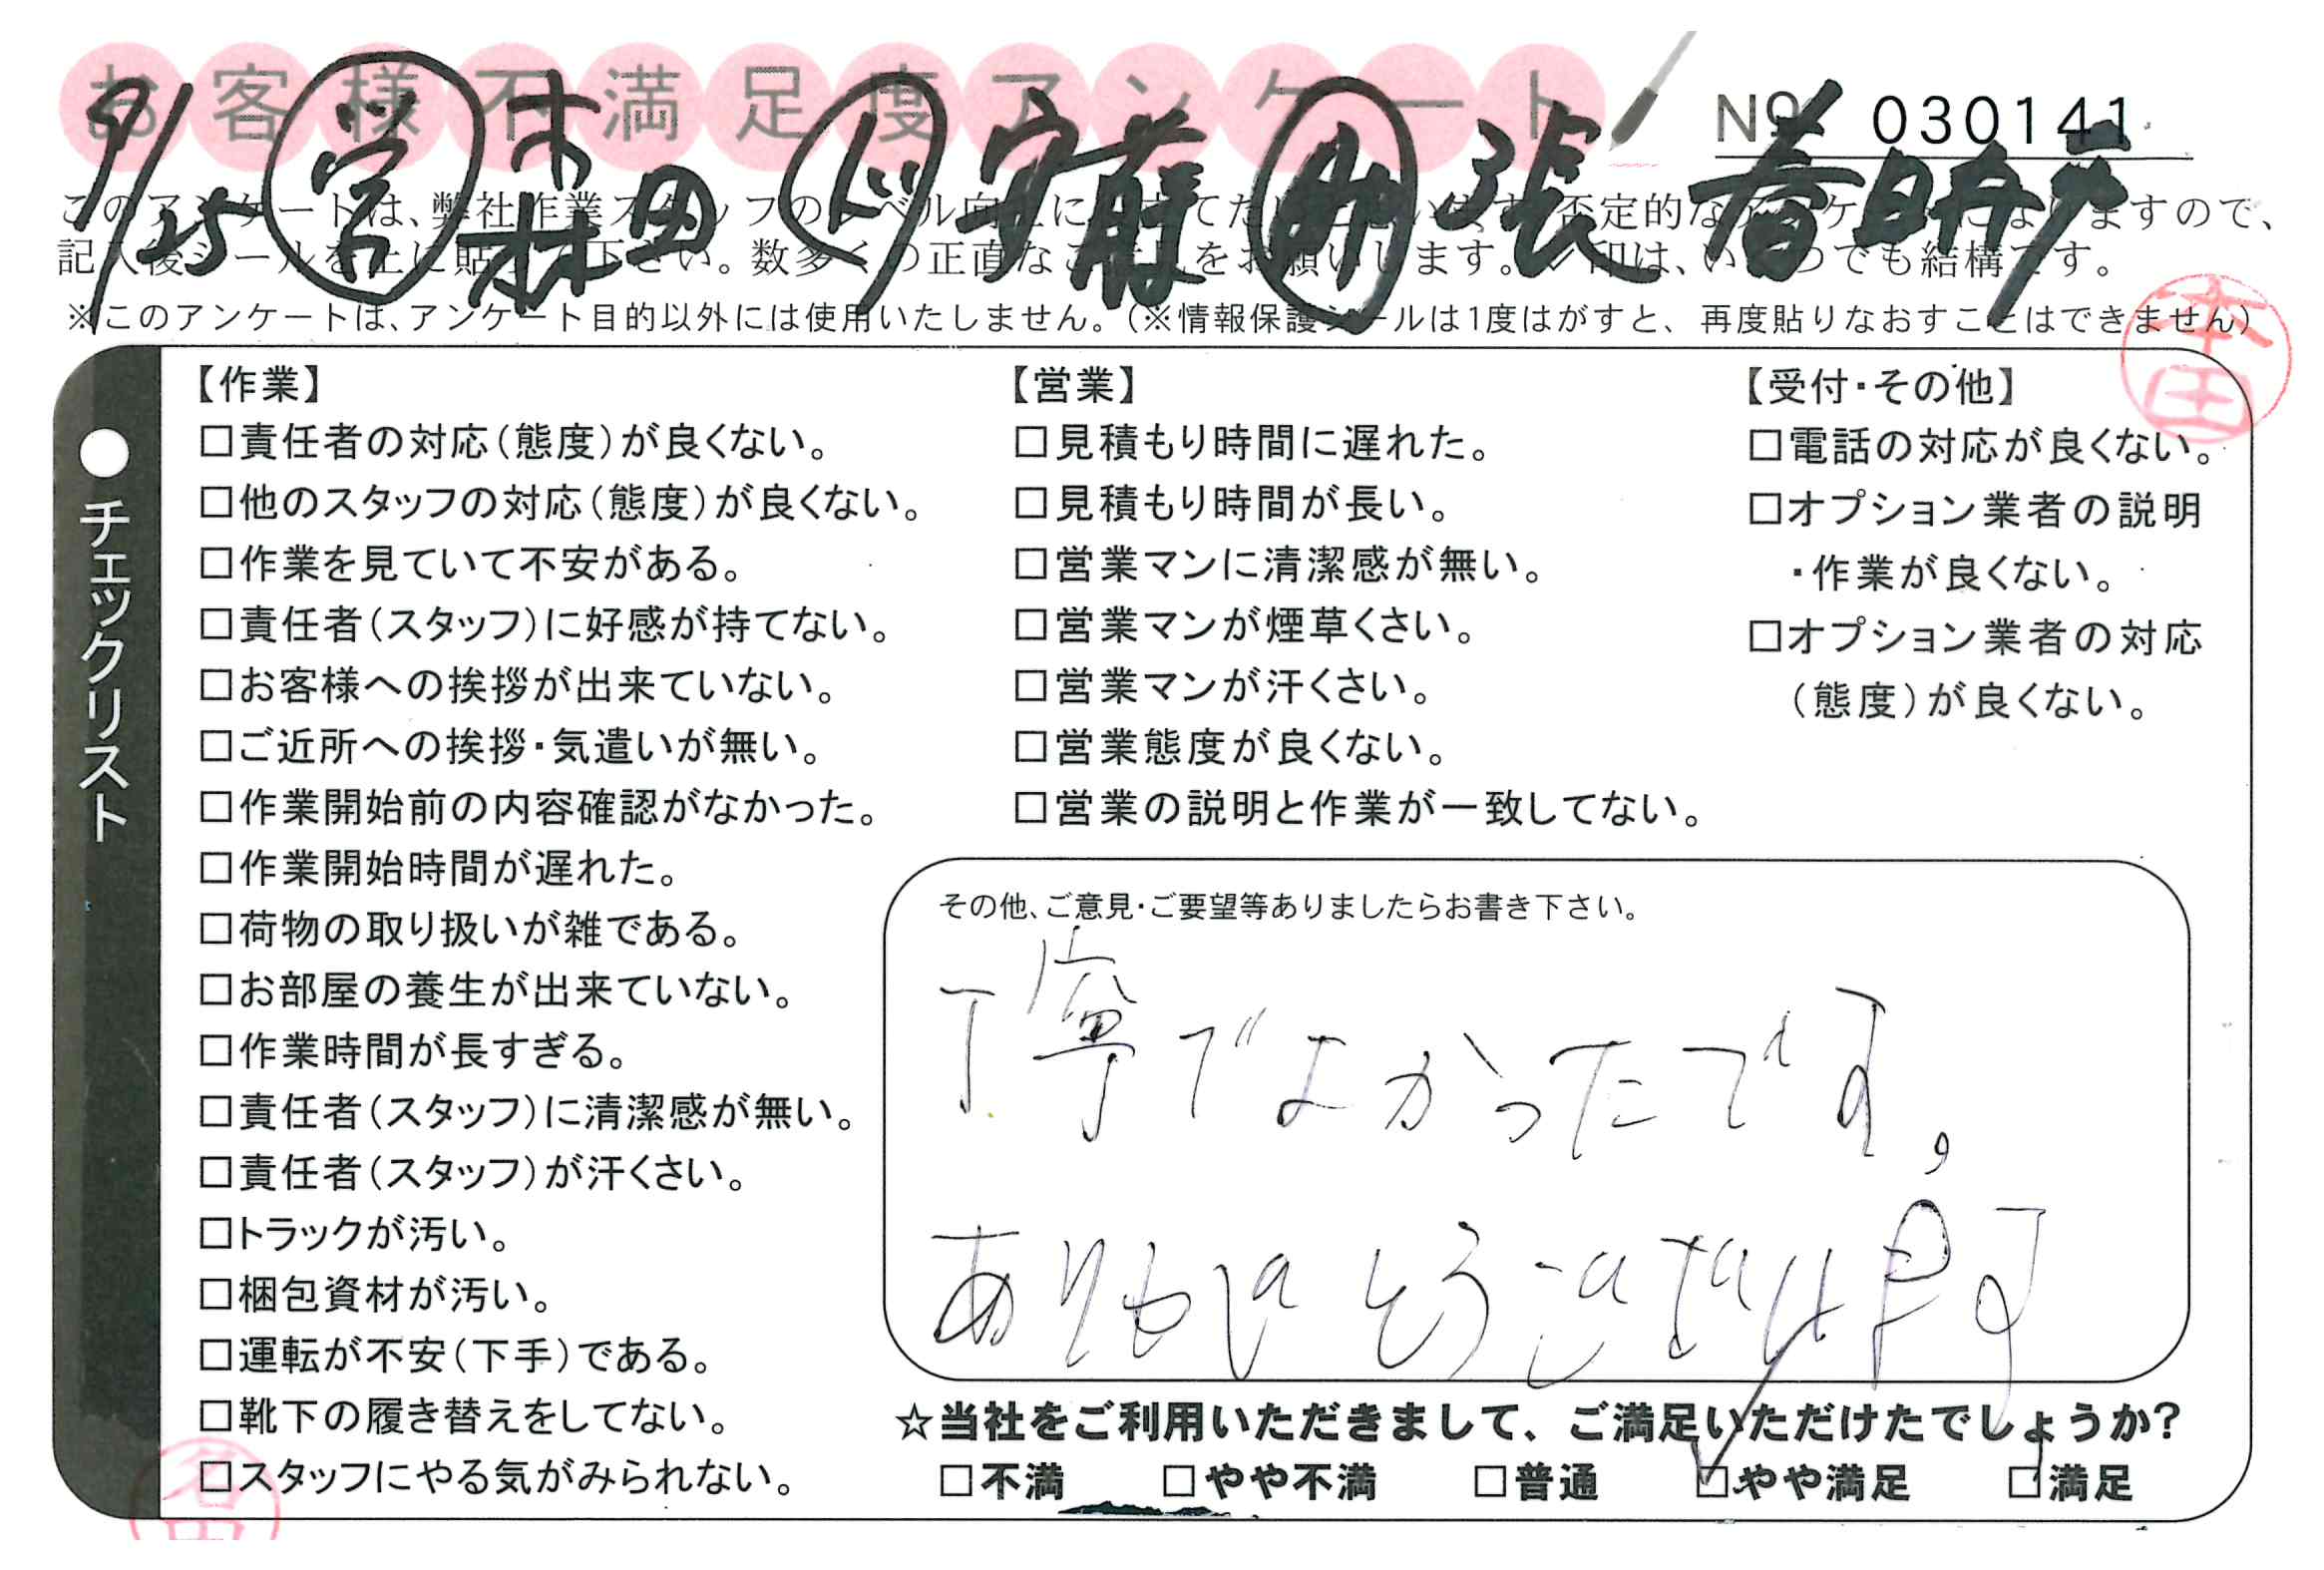 お客様不満足度アンケート
No. 030141
9/25 営 林田 ド 安藤 助 張 春日井
このアンケートは、弊社作業スタッフのレベル向上に てた い 否定的なアンケートになりますので、
記入後シールを上に貼って下さい。数多くの正直なご意見をお願いします。 印は、いくつでも結構です。
※このアンケートは、アンケート目的以外には使用いたしません。（※情報保護シールは1度はがすと、再度貼りなおすことはできません）
本田
●チェックリスト
【作業】
□責任者の対応（態度）が良くない。
□他のスタッフの対応（態度）が良くない。
□作業を見ていて不安がある。
□責任者（スタッフ）に好感が持てない。
□お客様への挨拶が出来ていない。
□ご近所への挨拶・気遣いが無い。
□作業開始前の内容確認がなかった。
□作業開始時間が遅れた。
□荷物の取り扱いが雑である。
□お部屋の養生が出来ていない。
□作業時間が長すぎる。
□責任者（スタッフ）に清潔感が無い。
□責任者（スタッフ）が汗くさい。
□トラックが汚い。
□梱包資材が汚い。
□運転が不安（下手）である。
□靴下の履き替えをしてない。
□スタッフにやる気がみられない。
【営業】
□見積もり時間に遅れた。
□見積もり時間が長い。
□営業マンに清潔感が無い。
□営業マンが煙草くさい。
□営業マンが汗くさい。
□営業態度が良くない。
□営業の説明と作業が一致してない。
【受付・その他】
□電話の対応が良くない。
□オプション業者の説明
・作業が良くない。
□オプション業者の対応
（態度）が良くない。
その他、ご意見・ご要望等ありましたらお書き下さい。
丁寧でよかったです。
ありがとうございます
☆当社をご利用いただきまして、ご満足いただけたでしょうか？
□不満 □やや不満 □普通 ☑やや満足 □満足